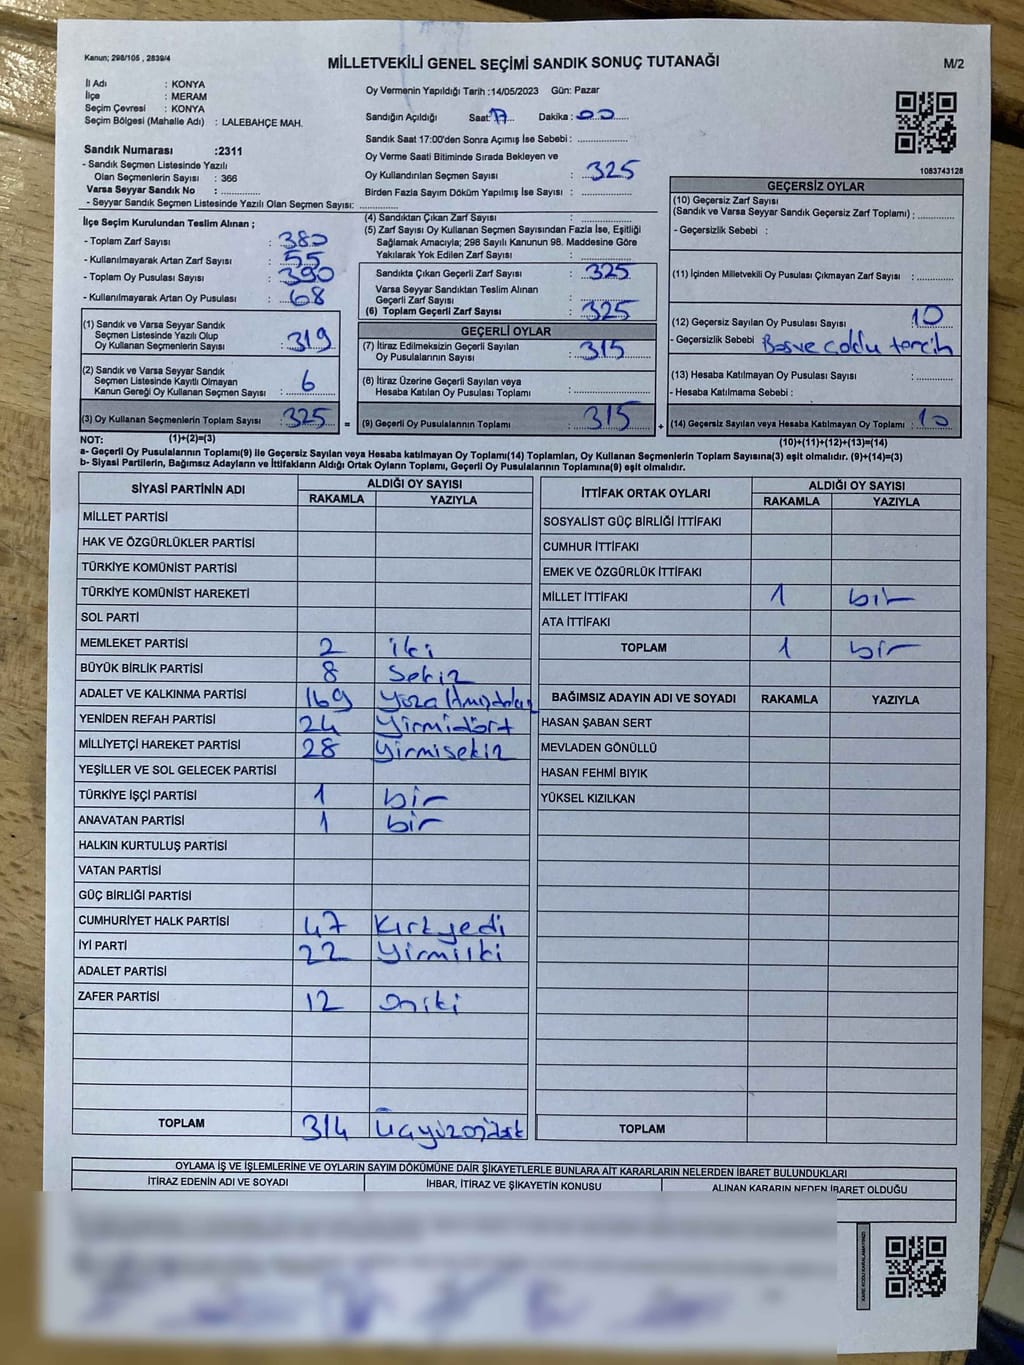 Kanun; 298/105 , 2839/4
MİLLETVEKİLİ GENEL SEÇİMİ SANDIK SONUÇ TUTANAĞI
M/2
İl Adı : KONYA
İlçe : MERAM
Seçim Çevresi : KONYA
Seçim Bölgesi (Mahalle Adı) : LALEBAHÇE MAH.
Sandık Numarası :2311
- Sandık Seçmen Listesinde Yazılı
Olan Seçmenlerin Sayısı : 366
Varsa Seyyar Sandık No :
- Seyyar Sandık Seçmen Listesinde Yazılı Olan Seçmen Sayısı:
Oy Vermenin Yapıldığı Tarih :14/05/2023 Gün: Pazar
Sandığın Açıldığı Saat: 17 Dakika : 00
Sandık Saat 17:00'den Sonra Açımış İse Sebebi :
Oy Verme Saati Bitiminde Sırada Bekleyen ve
Oy Kullandırılan Seçmen Sayısı : 325
Birden Fazla Sayım Döküm Yapılmış İse Sayısı :
1083743128
İlçe Seçim Kurulundan Teslim Alınan ;
- Toplam Zarf Sayısı : 380
- Kullanılmayarak Artan Zarf Sayısı : 55
- Toplam Oy Pusulası Sayısı : 390
- Kullanılmayarak Artan Oy Pusulası : 68
(1) Sandık ve Varsa Seyyar Sandık
Seçmen Listesinde Yazılı Olup
Oy Kullanan Seçmenlerin Sayısı : 319
(2) Sandık ve Varsa Seyyar Sandık
Seçmen Listesinde Kayıtlı Olmayan
Kanun Gereği Oy Kullanan Seçmen Sayısı : 6
(3) Oy Kullanan Seçmenlerin Toplam Sayısı : 325 =
(4) Sandıktan Çıkan Zarf Sayısı :
(5) Zarf Sayısı Oy Kullanan Seçmen Sayısından Fazla İse, Eşitliği
Sağlamak Amacıyla; 298 Sayılı Kanunun 98. Maddesine Göre
Yakılarak Yok Edilen Zarf Sayısı :
Sandıkta Çıkan Geçerli Zarf Sayısı : 325
Varsa Seyyar Sandıktan Teslim Alınan
Geçerli Zarf Sayısı :
(6) Toplam Geçerli Zarf Sayısı : 325
GEÇERLİ OYLAR
(7) İtiraz Edilmeksizin Geçerli Sayılan
Oy Pusulalarının Sayısı : 315
(8) İtiraz Üzerine Geçerli Sayılan veya
Hesaba Katılan Oy Pusulası Toplamı :
(9) Geçerli Oy Pusulalarının Toplamı : 315 +
GEÇERSİZ OYLAR
(10) Geçersiz Zarf Sayısı
(Sandık ve Varsa Seyyar Sandık Geçersiz Zarf Toplamı) :
- Geçersizlik Sebebi :
(11) İçinden Milletvekili Oy Pusulası Çıkmayan Zarf Sayısı :
(12) Geçersiz Sayılan Oy Pusulası Sayısı : 10
- Geçersizlik Sebebi : tercih
(13) Hesaba Katılmayan Oy Pusulası Sayısı :
- Hesaba Katılmama Sebebi :
(14) Geçersiz Sayılan veya Hesaba Katılmayan Oy Toplamı : 10
NOT: (1)+(2)=(3)
(10)+(11)+(12)+(13)=(14)
a- Geçerli Oy Pusulasının Toplamı(9) ile Geçersiz Sayılan veya Hesaba katılmayan Oy Toplamı(14) Toplamları, Oy Kullanan Seçmenlerin Toplam Sayısına(3) eşit olmalıdır. (9)+(14)=(3)
b- Siyasi Partilerin, Bağımsız Adayların ve İttifakların Aldığı Ortak Oyların Toplamı, Geçerli Oy Pusulalarının Toplamına(9) eşit olmalıdır.
SİYASİ PARTİNİN ADI ALDIĞI OY SAYISI
RAKAMLA YAZIYLA
MİLLET PARTİSİ
HAK VE ÖZGÜRLÜKLER PARTİSİ
TÜRKİYE KOMÜNİST PARTİSİ
TÜRKİYE KOMÜNİST HAREKETİ
SOL PARTİ
MEMLEKET PARTİSİ 2 iki
BÜYÜK BİRLİK PARTİSİ 8 Sekiz
ADALET VE KALKINMA PARTİSİ 169
YENİDEN REFAH PARTİSİ 24 Yirmidört
MİLLİYETÇİ HAREKET PARTİSİ 28 Yirmisekiz
YEŞİLLER VE SOL GELECEK PARTİSİ
TÜRKİYE İŞÇİ PARTİSİ 1 bir
ANAVATAN PARTİSİ 1 bir
HALKIN KURTULUŞ PARTİSİ
VATAN PARTİSİ
GÜÇ BİRLİĞİ PARTİSİ
CUMHURİYET HALK PARTİSİ 47 Kırkyedi
İYİ PARTİ 22 Yirmiiki
ADALET PARTİSİ
ZAFER PARTİSİ 12 Oniki
TOPLAM 314 Üçyüzondört
İTTİFAK ORTAK OYLARI ALDIĞI OY SAYISI
RAKAMLA YAZIYLA
SOSYALİST GÜÇ BİRLİĞİ İTTİFAKI
CUMHUR İTTİFAKI
EMEK VE ÖZGÜRLÜK İTTİFAKI
MİLLET İTTİFAKI 1 bir
ATA İTTİFAKI
TOPLAM 1 bir
BAĞIMSIZ ADAYIN ADI VE SOYADI RAKAMLA YAZIYLA
HASAN ŞABAN SERT
MEVLADEN GÖNÜLLÜ
HASAN FEHMİ BIYIK
YÜKSEL KIZILKAN
TOPLAM
OYLAMA İŞ VE İŞLEMLERİNE VE OYLARIN SAYIM DÖKÜMÜNE DAİR ŞİKAYETLERLE BUNLARA AİT KARARLARIN NELERDEN İBARET BULUNDUKLARI
İTİRAZ EDENİN ADI VE SOYADI İHBAR, İTİRAZ VE ŞİKAYETİN KONUSU ALINAN KARARIN NEDEN İBARET OLDUĞU
KARE KODU KARALAMAYINIZ!